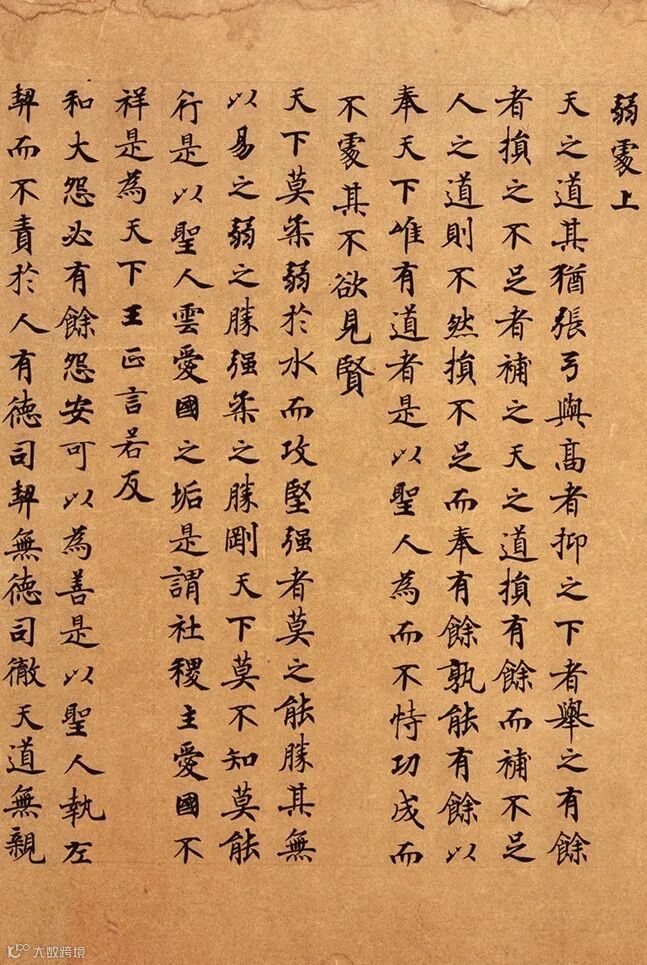 弱處上
天之道其猶張弓與高者抑之下者舉之有餘
者損之不足者補之天之道損有餘而補不足
人之道則不然損不足而奉有餘孰能有餘以
奉天下唯有道者是以聖人為而不恃功成而
不處其不欲見賢
天下莫柔弱於水而攻堅强者莫之能勝其無
以易之弱之勝强柔之勝剛天下莫不知莫能
行是以聖人雲愛國之垢是謂社稷主愛國不
祥是為天下王正言若反
和大怨必有餘怨安可以為善是以聖人執左
契而不責於人有德司契無德司徹天道無親
大数跨境